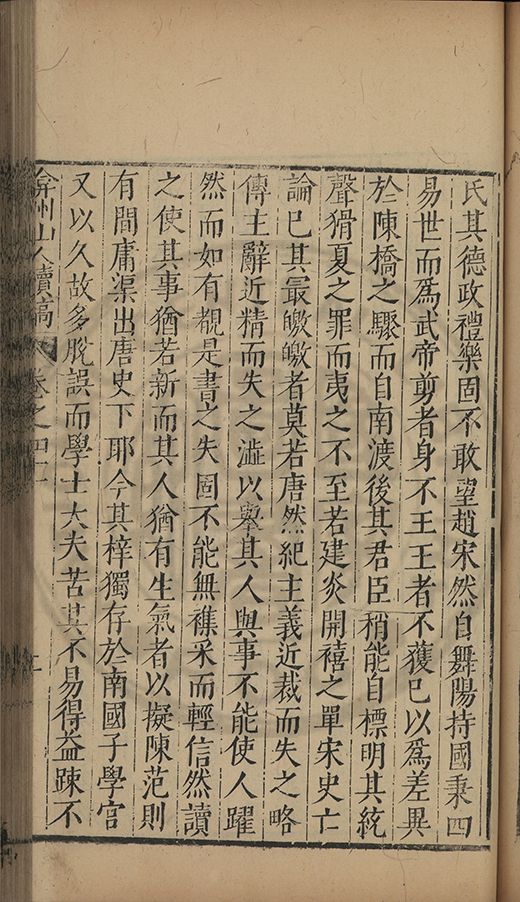 氏其德政禮樂固不敢望趙宋然自舞陽持國秉四
易世而爲武帝剪者身不王王者不獲已以爲差異
於陳橋之驟而自南渡後其君臣稍能自標明其統
聲猾夏之罪而夷之不至若建炎開禧之單宋史亡
論已其最皦皦者莫若唐然紀主義近裁而失之略
傳主辭近精而失之澁以舉其人與事不能使人躍
然而如有覩是書之失固不能無襍采而輕信然讀
之使其事猶若新而其人猶有生氣者以擬陳范則
有間庸渠出唐史下耶今其梓獨存於南國子學官
又以久故多脫誤而學士大夫苦其不易得益踈不
弇州山人續稿 卷之四十